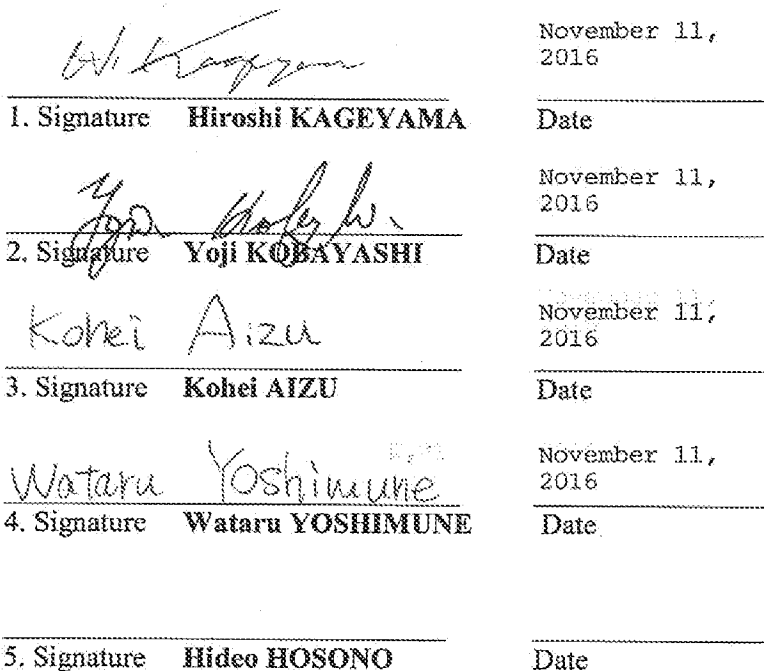 H. Kageyama
November 11,
2016
1. Signature Hiroshi KAGEYAMA
Date
Yoji Kobayashi
November 11,
2016
2. Signature Yoji KOBAYASHI
Date
Kohei Aizu
November 11,
2016
3. Signature Kohei AIZU
Date
Wataru Yoshimune
November 11,
2016
4. Signature Wataru YOSHIMUNE
Date
5. Signature Hideo HOSONO
Date